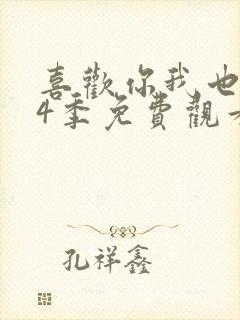 喜歡你我也
4季免費觀看
孔祥鑫